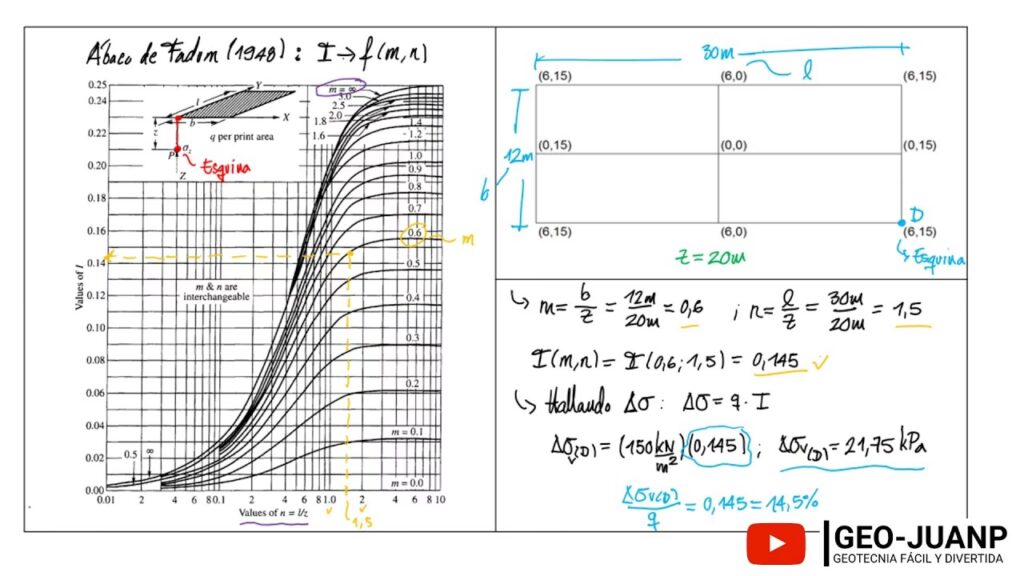 Ábaco de Fadum (1948) : I → f(m,n)
0.25
0.24
0.23
0.22
0.21
0.20
0.18
0.16
0.14
0.12
0.10
0.08
0.06
0.04
0.02
0.00
Values of I
m = ∞
3.0
2.5
2.0
1.8
1.6
1.4
1.2
1.0
0.9
0.8
0.7
0.6
m
0.5
0.4
0.3
0.2
m = 0.1
m = 0.0
Y
l
b
X
z
q per print area
P
σz
Z
Esquina
m & n are
interchangeable
0.5
∞
0.01 2 4 6 80.1 2 4 6 81.0 2 4 6 8 10
Values of n = l/z
1,5
30m
l
(6,15) (6,0) (6,15)
12m
b
(0,15) (0,0) (0,15)
D
(6,15) (6,0) (6,15)
Esquina
z = 20m
↳ m = b/z = 12m/20m = 0,6 ; n = l/z = 30m/20m = 1,5
I(m,n) = I(0,6 ; 1,5) = 0,145 ✓
↳ Hallando Δσ : Δσ = q · I
Δσv(D) = (150 kN/m²)(0,145) ; Δσv(D) = 21,75 kPa
Δσv(D)/q = 0,145 = 14,5%
GEO-JUANP
GEOTECNIA FÁCIL Y DIVERTIDA